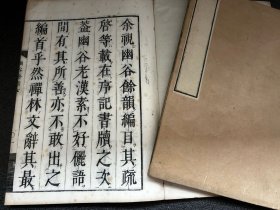 余視幽谷餘韻編目其疏
啓等載在序記書牘之次
葢幽谷老漢素不好儷語
間有其所善亦不敢出之
編首乎然禪林文辭其最